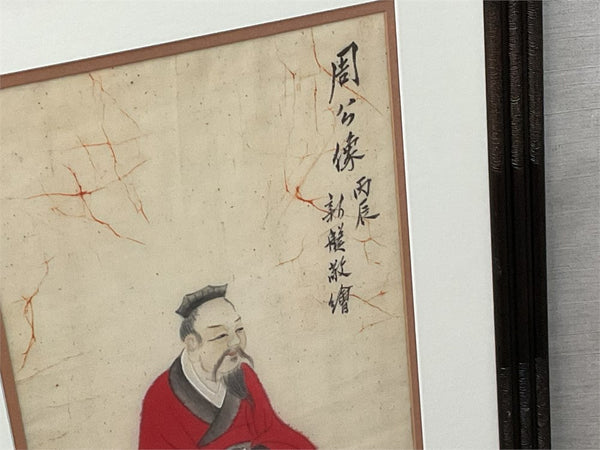 周公像
丙辰
新盤敬繪